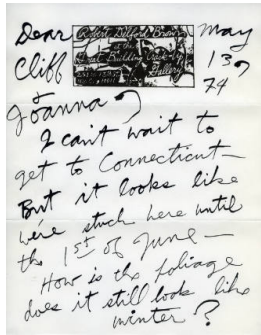 Dear
Cliff
Robert Delford Brown
Great Building Crack-Up
Gallery
May
13,
74
Joanna,
I can't wait to
get to Connecticut—
But it looks like
we're stuck here until
the 1st of June—
How is the foliage
does it still look like
winter?